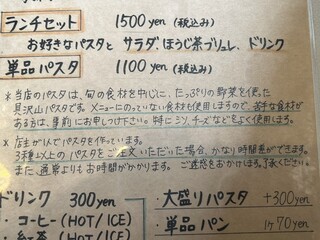 ランチセット 1500yen (税込み)
お好きなパスタと サラダ、ほうじ茶ブリュレ、ドリンク
単品パスタ 1100yen (税込み)
※当店のパスタは、旬の食材を中心に、たっぷりの野菜を使った
具沢山パスタです。メニューにのっていない食材も使用しますので、苦手な食材が
ある方は、事前にお申しつけください。特にシソ、チーズなどをよく使用します。
※店主が1人でパスタを作っています。
3種以上のパスタをご注文いただいた場合、かなり時間差ができます。
また、通常よりもお時間がかかります。ご迷惑をおかけします。ご了承ください。
ドリンク 300yen
・コーヒー(HOT/ICE)
・紅茶(HOT/ICE)
・大盛りパスタ +300yen
・単品パン 1ケ70yen